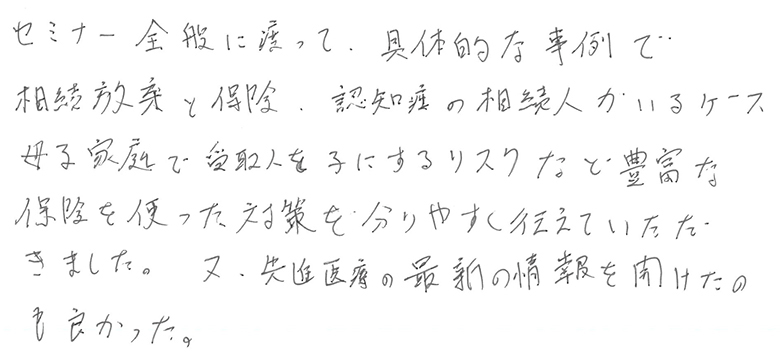 セミナー全般に渡って、具体的な事例で
相続放棄と保険、認知症の相続人がいるケース
母子家庭で受取人を子にするリスクなど豊富な
保険を使った対策を分りやすく伝えていただ
きました。又、先進医療の最新の情報を聞けたの
も良かった。